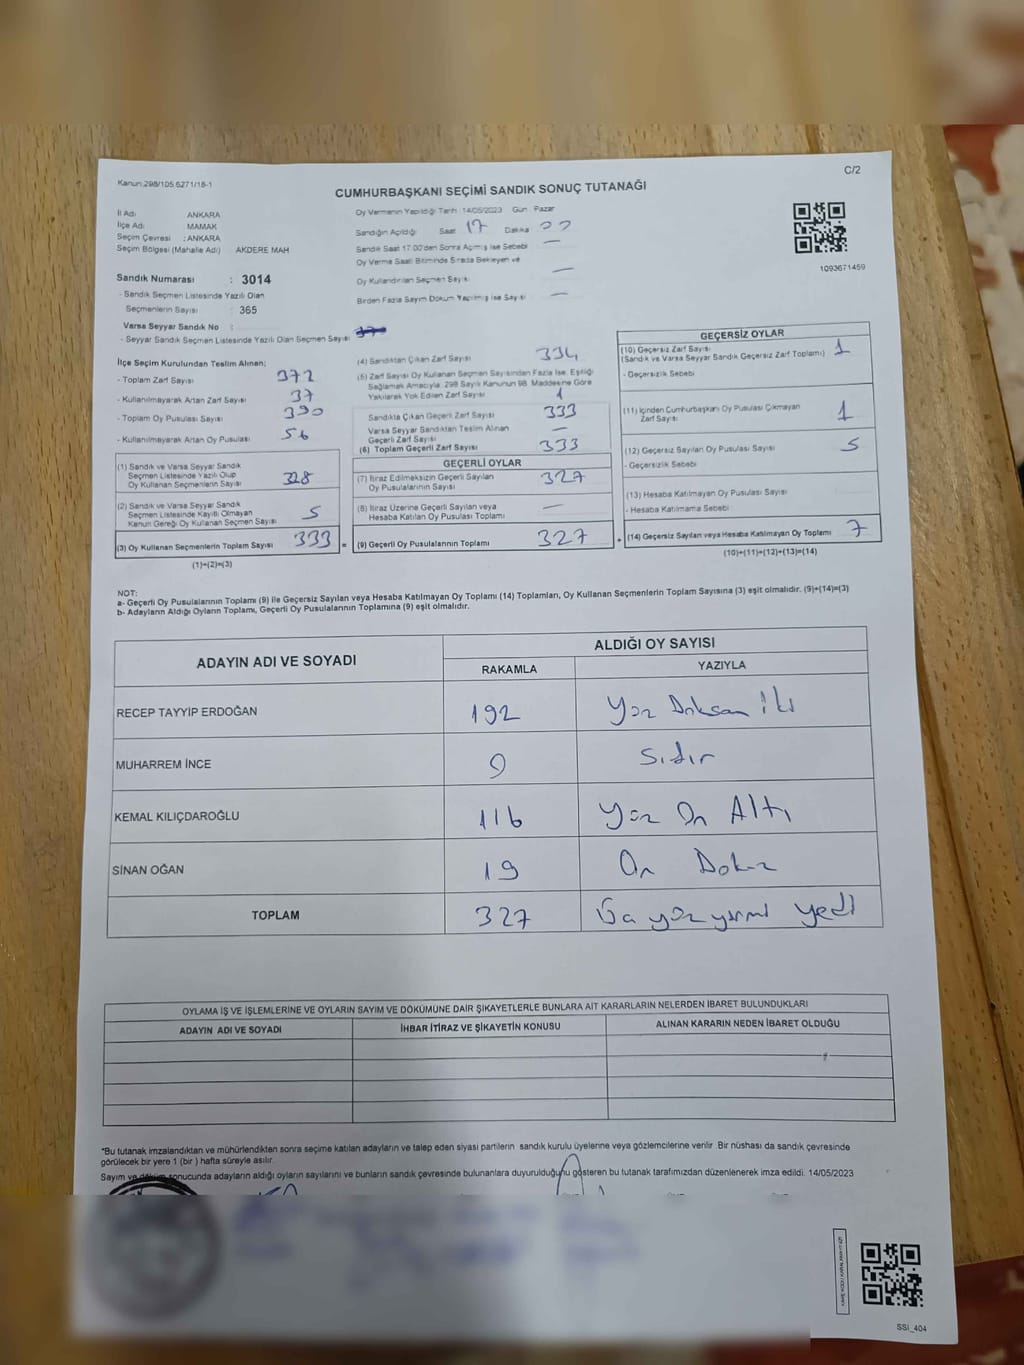 Kanun:298/105 6271/18-1
C/2
CUMHURBAŞKANI SEÇİMİ SANDIK SONUÇ TUTANAĞI
İl Adı ANKARA
İlçe Adı MAMAK
Seçim Çevresi : ANKARA
Seçim Bölgesi (Mahalle Adı) AKDERE MAH
Sandık Numarası : 3014
- Sandık Seçmen Listesinde Yazılı Olan
Seçmenlerin Sayısı 365
Varsa Seyyar Sandık No :
- Seyyar Sandık Seçmen Listesinde Yazılı Olan Seçmen Sayısı
Oy Vermenin Yapıldığı Tarih 14/05/2023 Gün Pazar
Sandığın Açıldığı Saat 17 Dakika
Sandık Saat 17.00'den Sonra Açılmış ise Sebebi —
Oy Verme Saati Bitiminde Sırada Bekleyen ve
Oy Kullandırılan Seçmen Sayısı —
Birden Fazla Sayım Döküm Yapılmış ise Sayısı —
1093671459
İlçe Seçim Kurulundan Teslim Alınan;
- Toplam Zarf Sayısı 372
- Kullanılmayarak Artan Zarf Sayısı 37
- Toplam Oy Pusulası Sayısı 390
- Kullanılmayarak Artan Oy Pusulası 56
(1) Sandık ve Varsa Seyyar Sandık
Seçmen Listesinde Yazılı Olup
Oy Kullanan Seçmenlerin Sayısı 328
(2) Sandık ve Varsa Seyyar Sandık
Seçmen Listesinde Kayıtlı Olmayan
Kanun Gereği Oy Kullanan Seçmen Sayısı 5
(3) Oy Kullanan Seçmenlerin Toplam Sayısı 333 =
(1)+(2)=(3)
(4) Sandıktan Çıkan Zarf Sayısı 334
(5) Zarf Sayısı Oy Kullanan Seçmen Sayısından Fazla İse, Eşitliği
Sağlamak Amacıyla; 298 Sayılı Kanunun 98. Maddesine Göre
Yakılarak Yok Edilen Zarf Sayısı 1
Sandıkta Çıkan Geçerli Zarf Sayısı 333
Varsa Seyyar Sandıktan Teslim Alınan
Geçerli Zarf Sayısı —
(6) Toplam Geçerli Zarf Sayısı 333
GEÇERLİ OYLAR
(7) İtiraz Edilmeksizin Geçerli Sayılan
Oy Pusulalarının Sayısı 327
(8) İtiraz Üzerine Geçerli Sayılan veya
Hesaba Katılan Oy Pusulası Toplamı —
(9) Geçerli Oy Pusulalarının Toplamı 327 +
GEÇERSİZ OYLAR
(10) Geçersiz Zarf Sayısı
(Sandık ve Varsa Seyyar Sandık Geçersiz Zarf Toplamı) 1
- Geçersizlik Sebebi
(11) İçinden Cumhurbaşkanı Oy Pusulası Çıkmayan
Zarf Sayısı 1
(12) Geçersiz Sayılan Oy Pusulası Sayısı 5
- Geçersizlik Sebebi
(13) Hesaba Katılmayan Oy Pusulası Sayısı
- Hesaba Katılmama Sebebi
(14) Geçersiz Sayılan veya Hesaba Katılmayan Oy Toplamı 7
(10)+(11)+(12)+(13)=(14)
NOT:
a- Geçerli Oy Pusulalarının Toplamı (9) ile Geçersiz Sayılan veya Hesaba Katılmayan Oy Toplamı (14) Toplamları, Oy Kullanan Seçmenlerin Toplam Sayısına (3) eşit olmalıdır. (9)+(14)=(3)
b- Adayların Aldığı Oyların Toplamı, Geçerli Oy Pusulalarının Toplamına (9) eşit olmalıdır.
ADAYIN ADI VE SOYADI ALDIĞI OY SAYISI
RAKAMLA YAZIYLA
RECEP TAYYİP ERDOĞAN 192 Yüz Doksan iki
MUHARREM İNCE 0 Sıfır
KEMAL KILIÇDAROĞLU 116 Yüz On Altı
SİNAN OĞAN 19 On Dokuz
TOPLAM 327 Üç yüz yirmi yedi
OYLAMA İŞ VE İŞLEMLERİNE VE OYLARIN SAYIM VE DÖKÜMÜNE DAİR ŞİKAYETLERLE BUNLARA AİT KARARLARIN NELERDEN İBARET BULUNDUKLARI
ADAYIN ADI VE SOYADI İHBAR İTİRAZ VE ŞİKAYETİN KONUSU ALINAN KARARIN NEDEN İBARET OLDUĞU
*Bu tutanak imzalandıktan ve mühürlendikten sonra seçime katılan adayların ve talep eden siyasi partilerin sandık kurulu üyelerine veya gözlemcilerine verilir. Bir nüshası da sandık çevresinde
görülecek bir yere 1 (bir ) hafta süreyle asılır.
Sayım ve döküm sonucunda adayların aldığı oyların sayılarını ve bunların sandık çevresinde bulunanlara duyurulduğunu gösteren bu tutanak tarafımızdan düzenlenerek imza edildi. 14/05/2023
SSI_404